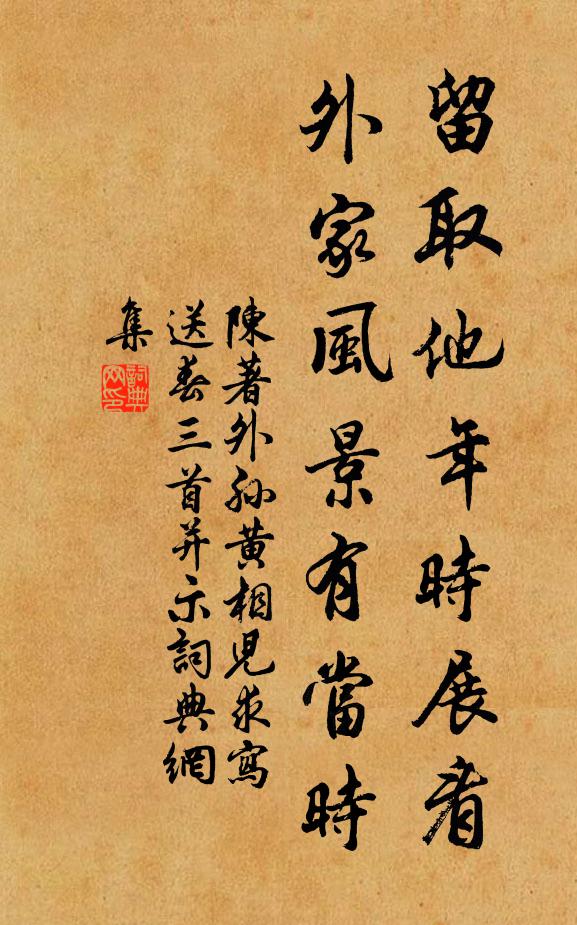 留取他年時展看
外家風景有當時
陳著外孫黃相兒求寫
送春三首并示詞典網
集
詞典網印